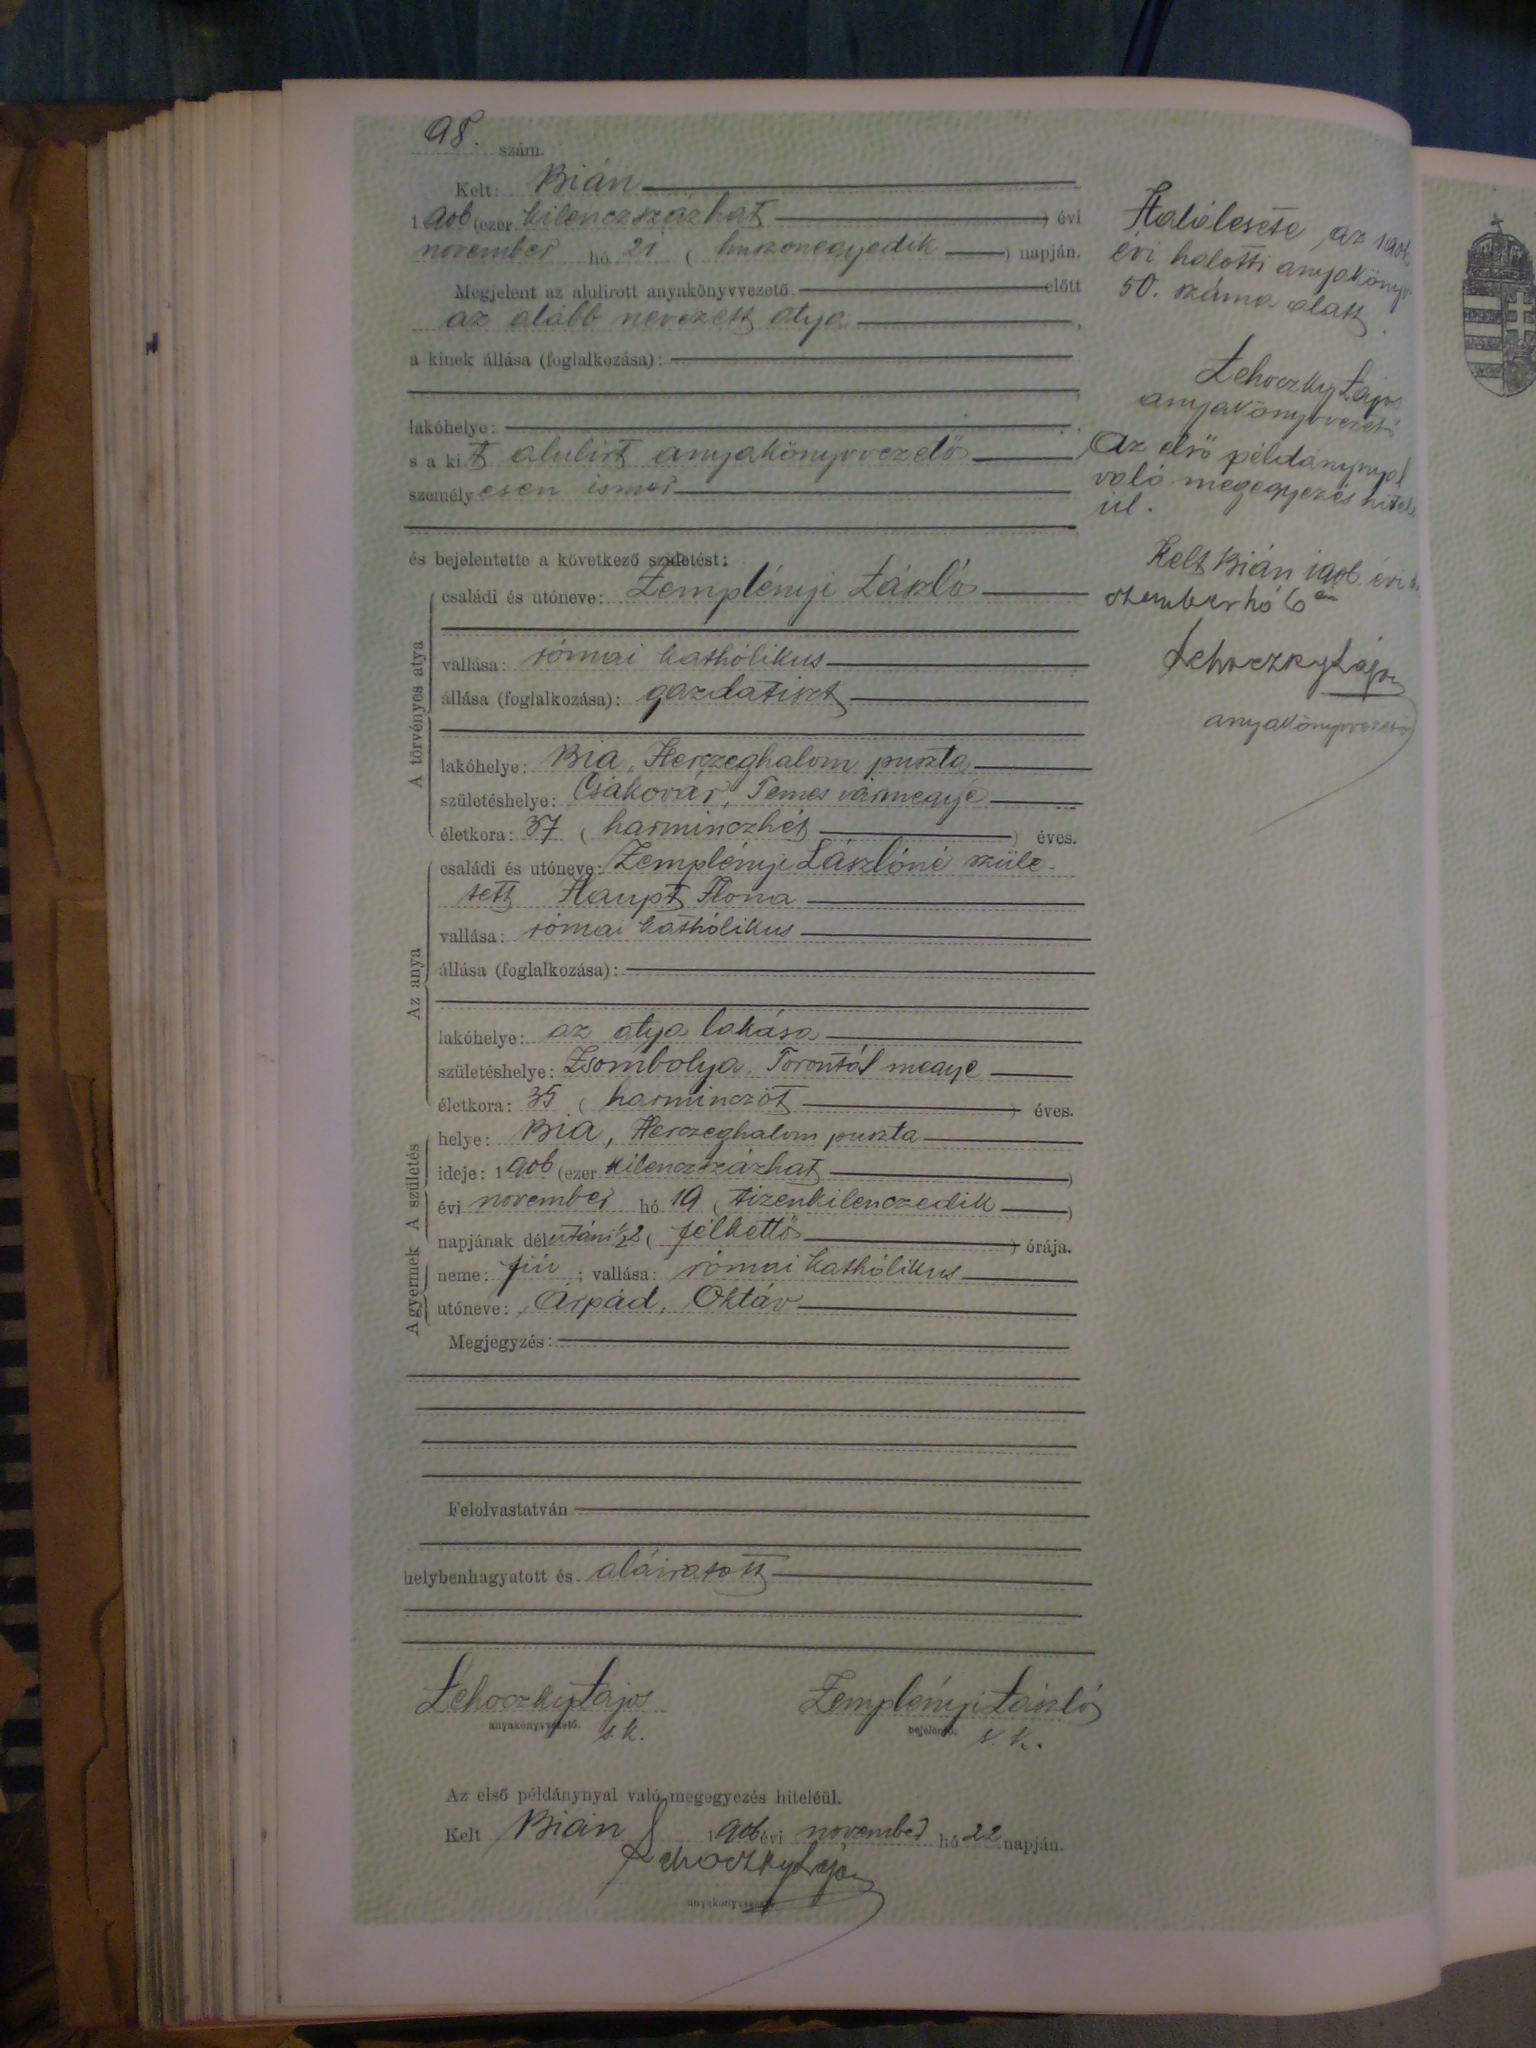 98. szám.
Kelt: Bián
1906 (ezer kilenczszázhat) évi
november hó 21 (huszonegyedik) napján.
Megjelent az alulirott anyakönyvvezető előtt
az alább nevezett atya,
a kinek állása (foglalkozása):
lakóhelye:
s a kit alulirt anyakönyvvezető
személyesen ismer
és bejelentette a következő születést:
A törvényes atya
családi és utóneve: Zemplényi László
vallása: római katholikus
állása (foglalkozása): gazdatiszt
lakóhelye: Bia, Herczeghalom puszta
születéshelye: Csákovár, Temes vármegye
életkora: 37 (harminczhét) éves.
Az anya
családi és utóneve: Zemplényi Lászlóné szüle-
tett Haupt Ilona
vallása: római katholikus
állása (foglalkozása):
lakóhelye: az atya lakása
születéshelye: Zsombolya, Torontál megye
életkora: 35 (harminczöt) éves.
A születés
helye: Bia, Herczeghalom puszta
ideje: 1906 (ezer kilenczszázhat)
évi november hó 19 (tizenkilenczedik)
napjának délutáni ½2 (félkettő) órája.
A gyermek
neme: fiú; vallása: római katholikus
utóneve: Árpád, Oktáv
Megjegyzés:
Felolvastatván
helybenhagyatott és aláiratott
Lehoczky Lajos Zemplényi László
anyakönyvvezető. s.k. bejelentő. s.k.
Az első példánynyal való megegyezés hiteléül.
Kelt Bián 1906 évi november hó 22 napján.
Lehoczky Lajos
anyakönyvvezető
Halálesete az 1906
évi halotti anyakönyv
50. száma alatt.
Lehoczky Lajos
anyakönyvvezető
Az első példánynyal
való megegyezés hitelé
ül.
Kelt Bián 1906 évi de
czember hó 6án
Lehoczky Lajos
anyakönyvvezető